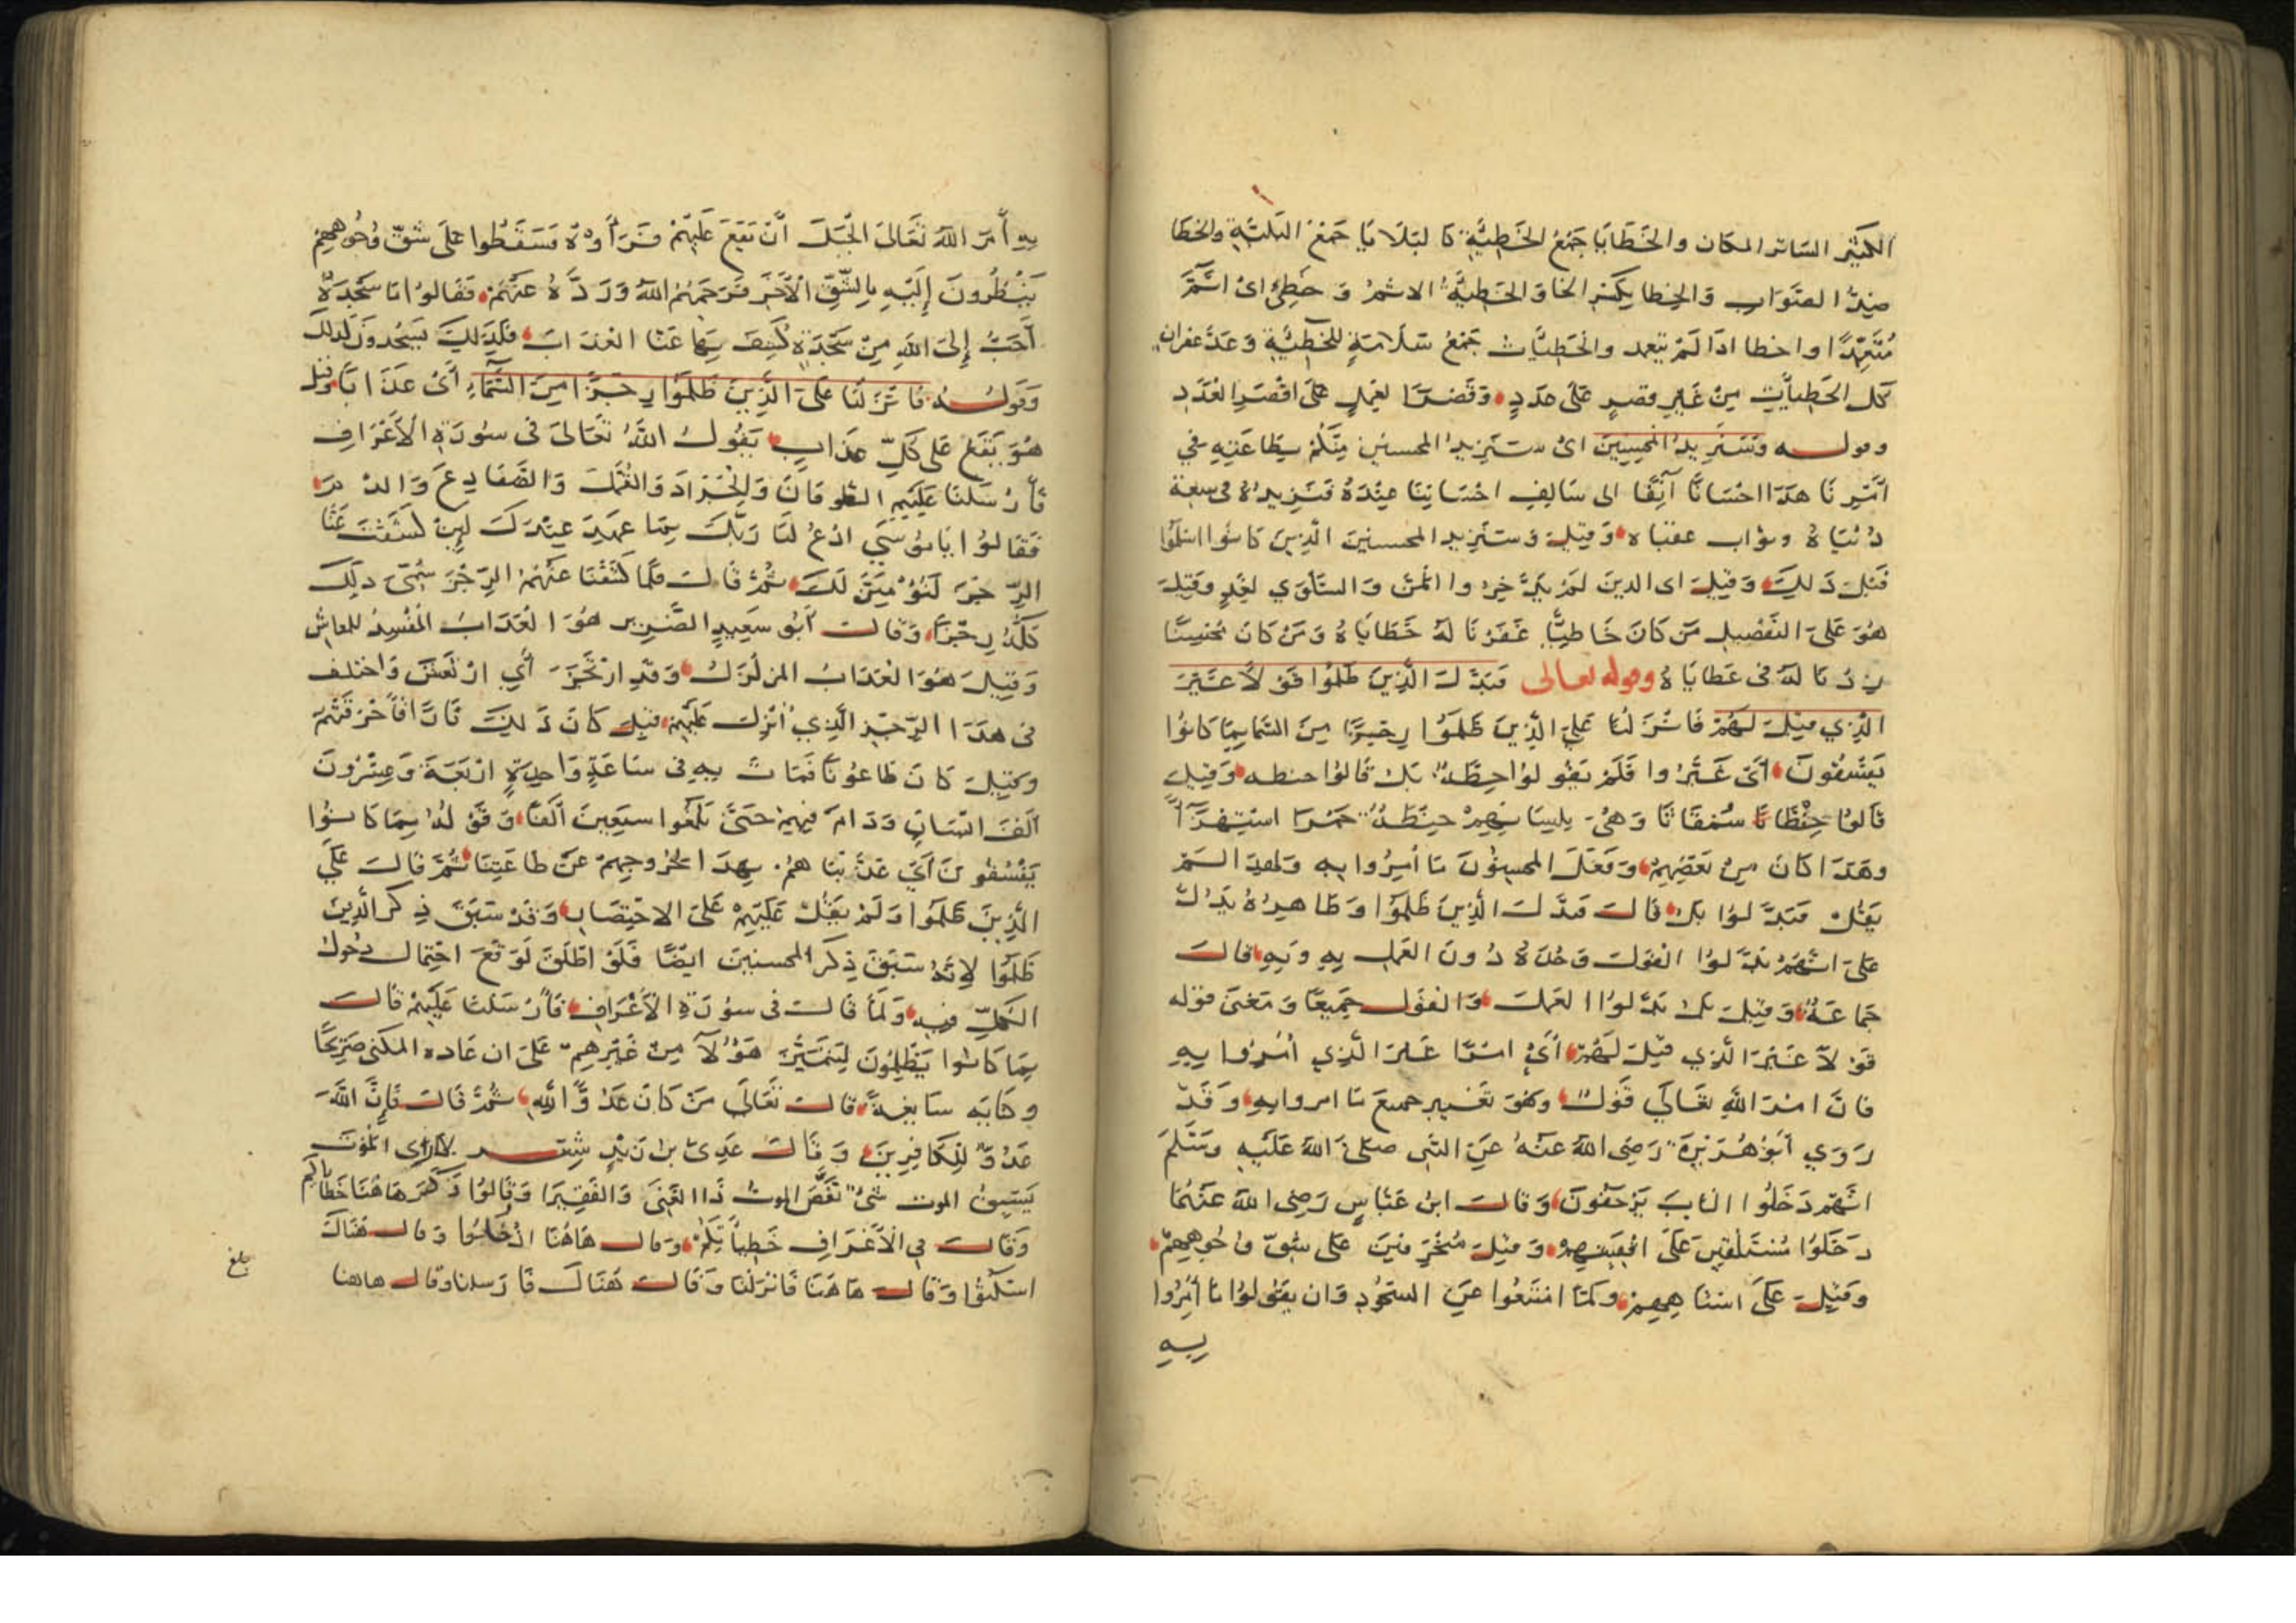 الكثير الساتر المكان والخَطَايَا جَمْعُ الخَطِيَّةِ كا لبَلَايَا جَمْعُ البَليَّةِ والخَطَا
ضِدُّ الصَّوَابِ وَالخِطا بكسر الخا وَالخَطِيَّةُ الاثمُ وَ خَطِئَ اىْ اَثَمَ
مُتَعَمِّدًا واخطا اذَا لَمْ يتعمد والخَطِيَّات جَمْعُ سَلَامَةٍ للخَطِيَّةِ وَعَدَ غفران
كل الخَطِيأتِ مِنْ غَيْرِ قصرٍ عَلَى عَدَدٍ وَقَصْرًا لغيرٍ عَلَى اقْصَرِ العَدَدِ
وقوله وَسَنَزِيدُ المُحْسِنِينَ اىْ سَنَزِيدُ المحسنين مِنْكُمْ بِطَاعَتِهِ فِي
اَمْرِنَا هَذَا احْسَانًا آنِفًا الى سَالِفِ احْسَانِنَا عِنْدَهُ فَنَزِيدُهُ فى سِعَةِ
دُنْيَاهُ وثواب عقباه وَقِيلَ وَسَنَزِيد المحسنينَ الَّذِينَ كَانُوا اسْلَمُوا
قَبْلَ ذَلِكَ وَقِيلَ اى الدينَ لَمْ يَدَّخِرُوا المَنَّ وَالسَّلوَى لغَدٍ وَقِيلَ
هُوَ عَلَى التَّفْصِيلِ مَنْ كَانَ خَاطِيًا غَفَرْنَا لَهُ خَطَايَاهُ وَمَنْ كَانَ مُحْسِنًا
زِدْنَا لَهُ فى عَطايَاهُ وقوله تعالى فَبَدَّلَ الَّذِينَ ظَلَمُوا قَوْلًا غَيْرَ
الَّذِي قِيلَ لَهُمْ فَانْزَلْنَا عَلَى الَّذِينَ ظَلَمُوا رِجْزًا مِنَ السَّمَا بِمَا كَانُوا
يَفْسُقُونَ أىْ غَيَّرُوا فَلَمْ يَقُولُوا حِطَّةٌ بَلْ قَالُوا حنطه وَقِيلَ
قَالُوا حِنْطَا نَا سُمْقَاثَا وَهْىَ بِلِسَانِهِمْ حِنْطَةٌ حَمْرَا استِهْزَآءً
وهَذَا كَانَ مِنْ بَعْضِهِمْ وَفَعَلَ المحسِنُونَ مَا اُمِرُوا بِهِ وَلهذِا لَمْ
يَقُلْ فَبَدَّلُوا بَلْ قَالَ فَبَدَّلَ الَّذِينَ ظَلَمُوا وَظَاهِرُهُ يَدُلُّ
عَلَى انَّهُمْ بَدَّلُوا القَولَ وَحْدَهُ دُونَ العَمَلِ بِهِ وَبِهِ قالَ
جَمَاعَةٌ وَقِيلَ بَلْ بَدَّلُوا العَمَلَ وَالقَولَ جَمِيعًا وَمَعْنَى قوْله
قَوْلًا غَيْرَ الَّذِي قِيلَ لَهُمْ أَىْ امْرًا غَيْرَ الَّذِي اُمِرُوا بِهِ
فَانَّ امْرَ اللَّهِ تَعَالَى قَوْلٌ وَهُوَ تَغْيِير جميعَ مَا امروا بِهِ وَقَدْ
رَوَي أَبُو هُرَيْرَةَ رَضِىَ اللَّهُ عَنْهُ عَنِ النَّبِى صَلَّى اللَّهُ عَلَيْهِ وَسَلَّمَ
انَّهُمْ دَخَلُوا البَابَ يَزْحَفُونَ وَقالَ ابنُ عَبَّاسٍ رَضِىَ اللَّهُ عَنْهُمَا
دَخَلُوا مُسْتَلْقِينَ عَلَى اقْفِيَتِهِمْ وَقِيلَ مُنْحَرِفِينَ عَلَى شِقِّ وُجُوهِهِمْ
وَقِيلَ عَلَى اسْتَاهِهِمْ ولمَّا امْتَنَعُوا عَنِ السُّجُودِ وَان يقَولُوا مَا اُمِرُوا
بِهِ
بِهِ أَمَرَ اللَّهُ تَعَالَى الجَبَلَ أَنْ يَقَعَ عَلَيْهِمْ فَرَأَوْهُ فَسَقَطُوا عَلَى شِقِّ وُجُوهِهِمْ
يَنْظُرُونَ إِلَيْهِ بِالشِّقِّ الْأَخَرِ فَرَحِمَهُمُ اللَّهُ وَرَدَّهُ عَنْهُمْ فَقَالُوا مَا سَجْدَةٌ
أَحَبَّ إِلَى اللَّهِ مِنْ سَجْدَةٍ كُشِفَ بِهَا عَنَّا العَذَابَ فَلِذَلِكَ يَسْجُدُونَ كَذلك
وَقَولُهُ فَانْزَلْنَا عَلَى الَّذِينَ ظَلَمُوا رِجْزًا مِنَ السَّمَاءِ أَىْ عَذَابًا وَقِيلَ
هُوَ يَقَعُ عَلَى كُلِّ عَذَابٍ يَقُولُ اللَّهُ تَعَالَى فى سُورَةِ الْأَعْرَافِ
فَأَرْسَلْنَا عَلَيْهِمِ الطُّوفَانَ وَالجَرَادَ وَالقُمَّلَ وَالضَّفَادِعَ وَالدَّمَ
فَقَالُوا يَا مُوسَى ادْعُ لَنَا رَبَّكَ بِمَا عَهِدَ عِنْدَكَ لَئِنْ كَشَفْتَ عَنَّا
الرِّجْزَ لَنُؤْمِنَنَّ لَكَ ثُمَّ قَالَ فَلَمَّا كَشَفْنَا عَنْهُمُ الرِّجْزَ سَمَّى ذلِكَ
كُلَّهُ رِجْزًا وَقَالَ أَبُو سَعِيدٍ الضَّرِير هُوَ العَذَابُ المُفْسِدُ للمعاش
وَقِيلَ هُوَ العَذَابُ المزلْزِلُ وَقَدِ ارْتَجَزَ أَيِ ارْتَعَشَ وَاختلف
فى هَذَا الرِّجْزِ الَّذِي أُنْزِلَ عَلَيْهِمْ قِيلَ كَانَ ذَلِكَ نَارًا فَأَحْرَقَتْهُمْ
وقِيلَ كَانَ طَاعُونًا فَمَاتَ بِهِ فِى سَاعَةٍ وَاحِدَةٍ ارْبَعَةٌ وَعِشْرُونَ
اَلْفَ انْسَانٍ وَدَامَ فِيهِمْ حَتَّى بَلَغُوا سبعِينَ اَلْفًا وَقَوْلُهُ بِمَا كَانُوا
يَفْسُقُونَ أَيْ عَذَّبْنَاهُمْ بِهَذَا لخُرُوجِهِمْ عَنْ طَاعَتِنَا ثُمَّ قَالَ عَلَى
الَّذِينَ ظَلَمُوا وَلَمْ يَقُلْ عَلَيْهِمْ عَلَى الاخْتِصَارِ وَقَدْ سَبَقَ ذِكْرُ الَّذِينَ
ظَلَمُوا لِانَّهُ سَبَقَ ذِكْر المحسنِينَ ايْضًا فَلَوْ اطْلَقَ لَوَقَعَ احْتِمَال دخُول
الكُلِّ فِيهِ وَلَمَّا قَالَ فى سورَةِ الْأَعْرَافِ فَأَرْسَلْنَا عَلَيْهِمْ قَالَ
بِمَا كَانُوا يَظْلِمُونَ لِيَتَمَيَّزَ هَؤُلَآ مِنْ غَيْرِهِمْ عَلَى ان عَادة المكنى صَرِيحًا
وكنايَه سَايغةٌ قالَ تَعَالَى مَنْ كَانَ عَدُوًّا للَّهِ ثُمَّ قَالَ فَإِنَّ اللَّهَ
عَدُوٌّ لِلْكَافِرِينَ وَقَالَ عَدِىُّ بْنُ زَيْدٍ شِعْر لا ارى الموْتَ
يَسْبِقُ الموت شَىْءٌ نَغَّصَ الموتُ ذَا الغِنَى وَالفَقِيرَا وَقَالُوا ذَكَرَ هَاهُنَا خَطَايَاكُم
وَقَالَ فِي الْأَعْرَافِ خَطِيأتِكُمْ وَقال هَاهُنَا ادْخُلُوا وَقال هُنَاكَ
اسْكُنُوا وَقَالَ هَاهُنَا فَانْزَلْنَا وَقَالَ هُنَاكَ فَارْسلنا وقَالَ هاهنا
بلغ